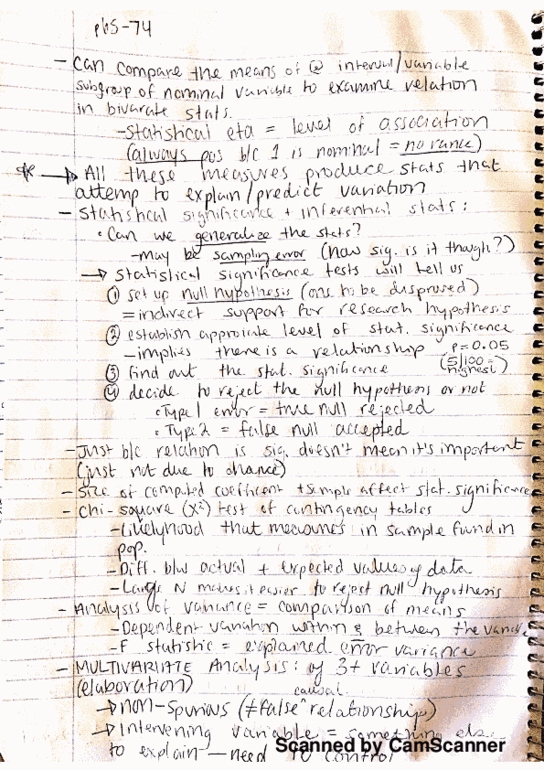 p65-74
- Can compare the means of @ interval/variable
subgroup of nominal variable to examine relation
in bivarate stats.
-Statistical eta = level of association
(always pos b/c 1 is nominal = no range)
* → All these measures produce stats that
attemp to explain/predict variation
- Statistical significance + inferential stats:
• Can we generalize the stats?
-may be sampling error (how sig. is it though?)
→ Statistical significance tests will tell us
① set up null hypothesis (ons to be disproved)
= indirect support for research hypothesis
② establish approiate level of stat. significance
-implies there is a relationship p=0.05
③ find out the stat. significance (5/100 = highest)
④ decide to reject the null hypothesis or not
• Type 1 error = true null rejected
• Type 2 = false null accepted
-Just b/c relation is sig. doesn't mean it's important
(just not due to chance)
- Size of computed coefficent + sample affect stat. significance
- Chi-square (X²) test of contingency tables
-Likelyhood that measures in sample found in
pop.
-Diff. b/w actual + expected values of data
-Large N makes it easier to reject null hypothesis
- Analysis of variance = comparison of means
-Dependent variation within & between the
-F statistic = explained error variance
- MULTIVARIATE Analysis: of 3+ variables
(elaboration) causal
→ non-spurious (≠false^relationship)
→ Intervening variable = something else
to explain - need to control
Scanned by CamScanner